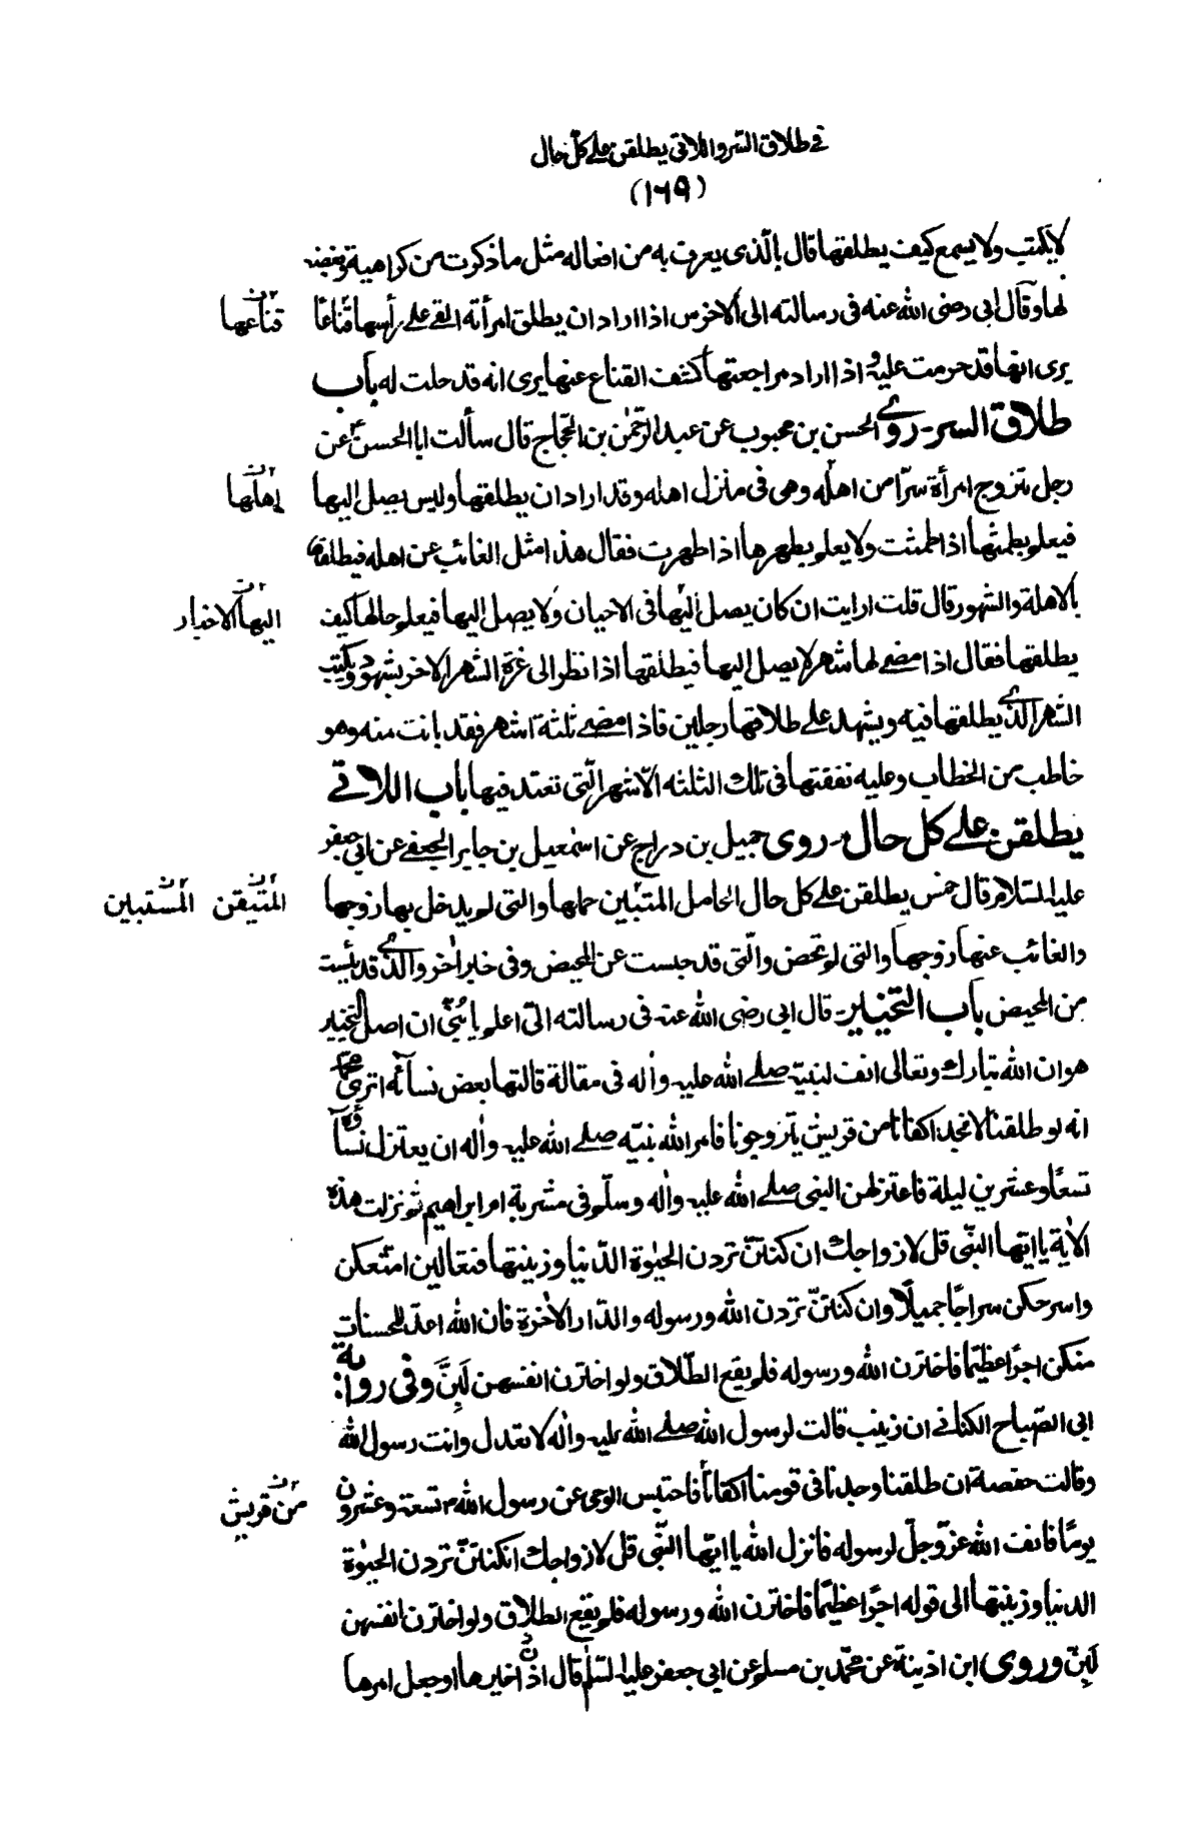 في طلاق السر واللاتي يطلقن على كل حال
(١٦٩)
لا يكتب ولا يسمع كيف يطلقها قال بالذي يعرف به من افعاله مثل ما ذكرت من كراهيته وبغضه
لها وقال ابي رضي الله عنه في رسالته الى الاخرس اذا اراد ان يطلق امرأته القى على رأسها قناعًا
قناعها
يرى انها قد حرمت عليه واذا اراد مراجعتها كشف القناع عنها يرى انه قد حلت له باب
طلاق السر روى الحسن بن محبوب عن عبد الرحمٰن بن الحجاج قال سألت ابا الحسن ع عن
رجل تزوج امرأة سرّا من اهله وهي في منزل اهله وقد اراد ان يطلقها وليس يصل إليها
اهلها
فيعلم بطمثها اذا طمثت ولا يعلم بطهرها اذا طهرت فقال هذا مثل الغائب عن اهله فيطلقها
بالاهلة والشهور قال قلت ارايت ان كان يصل اليها في الاحيان ولا يصل إليها فيعلم حالها كيف
اليها الاخيار
يطلقها فقال اذا مضى لها شهر لا يصل إليها فيطلقها اذا نظر الى غرة الشهر الاخر بشهود ويكتب
الشهر الذي يطلقها فيه ويشهد على طلاقها رجلين فاذا مضى ثلثة اشهر فقد بانت منه وهو
خاطب من الخطاب وعليه نفقتها في تلك الثلثه الاشهر الّتي تعتد فيها باب اللاتي
يطلقن على كل حال روى جميل بن دراج عن اسمٰعيل بن جابر الجعفي عن ابي جعفر
عليه السلام قال خمس يطلقن على كل حال الحامل المتبين حملها والتي لم يدخل بها زوجها
المتيقن المستبين
والغائب عنها زوجها والتي لم تحض والّتي قد جلست عن المحيض وفي خبر اٰخر والذي قد يئست
من المحيض باب التخيير قال ابي رضي الله عنه في رسالته اليّ اعلم يا بُنيّ ان اصل التخيير
هو ان الله تبارك وتعالى انف لنبيّه صلى الله عليه واٰله في مقالة قالتها بعض نسآئه اترى محمّد
انه لو طلقنا لا نجد اكفائا من قريش يتزوجونا فامر الله نبيّه صلى الله عليه واٰله ان يعتزل نسآؤه
تسعًا وعشرين ليلة فاعتزلهن النبي صلى الله عليه واٰله وسلّم في مشربة ام ابراهيم ثم نزلت هذه
الاٰية يا ايها النبّي قل لازواجك ان كنتنّ تردن الحيٰوة الدّنيا وزينتها فتعالين امتّعكن
واسرحكن سراحًا جميلًا وان كنتنّ تردن الله ورسوله والدّار الاٰخرة فان الله اعدّ للمحسنات
منكن اجرًا عظيمًا فاخترن الله ورسوله فلم يقع الطّلاق ولو اخترن انفسهن لَبِنَّ وفي رواية
ابي الصّباح الكناني ان زينب قالت لرسول الله صلى الله عليه واٰله لا تعدل وانت رسول الله
وقالت حفصة ان طلقنا وجدنا في قومنا اكفائًا فاحتبس الوحي عن رسول الله ص تسعة وعشرون
من قريش
يومًا فانف الله عزّ وجلّ لرسوله فانزل الله يا ايّها النّبي قل لازواجك ان كنتنّ تردن الحيٰوة
الدنيا وزينتها الى قوله اجرًا عظيمًا فاخترن الله ورسوله فلم يقع الطلاق ولو اخترن انفسهن
لَبِنّ وروى ابن اذينة عن محمّد بن مسلم عن ابي جعفر عليه السلم قال اذا خيرها او جعل امرها